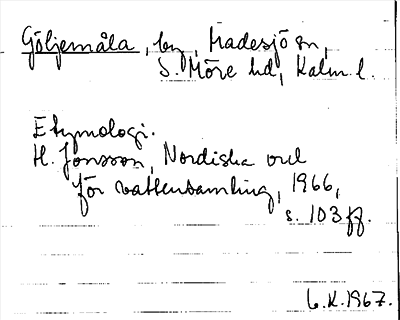 Göljemåla, by, Madesjö sn,
S. Möre hd, Kalm. l.
Etymologi.
H. Jonsson, Nordiska ord
för vattensamling, 1966,
s. 103 ff.
6.K.1967.